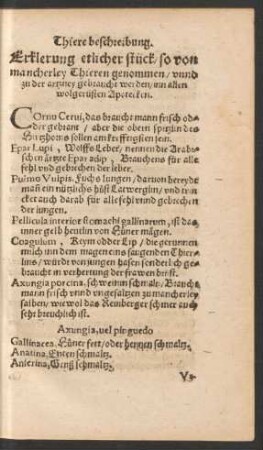 Thiere beschreibung.
Erklerung etlicher stück / so von
mancherley Thieren genommen / vnnd
zu der artzney gebraucht werden / inn allen
wolgerüsten Apotecken.
Cornu Cerui, das braucht mann frisch od-
der gebrant / aber die obern spitzlin des
Hirtzhorns sollen am krefftigsten sein.
Epar Lupi, Wolffs Leber, nennen die Arabi-
schen ärtzte Epar adip, Brauchens für alle
fehl vnd gebrechen der leber.
Pulmo Vulpis, Fuchs lungen / daruon bereyde
mañ ein nützlichs hüst Latwerglin / vnd trü-
cket auch darab für alle fehl vnnd gebrechen
der lungen.
Pellicula interior stomachi gallinarum, ist das
inner gelb heutlin von Hüner mägen.
Coagulum, Reym odder Lip / die gerunnen
milch inn dem magen eins saugenden Thier-
lins / würt von jungen hasen sonderlich ge-
braucht in verhertung der frawen brüst.
Axungia porcina, schweinin schmalz / Brauch
mann frisch vnnd vngesaltzen zu mancherley
salben / wiewol das Renberger schmer auch
seht breuchlich ist.
Axungia, vel pinguedo
Gallinacea, Hüner fett / oder hennen schmaltz.
Anatina, Enten schmaltz.
Anserina, Genß schmaltz.